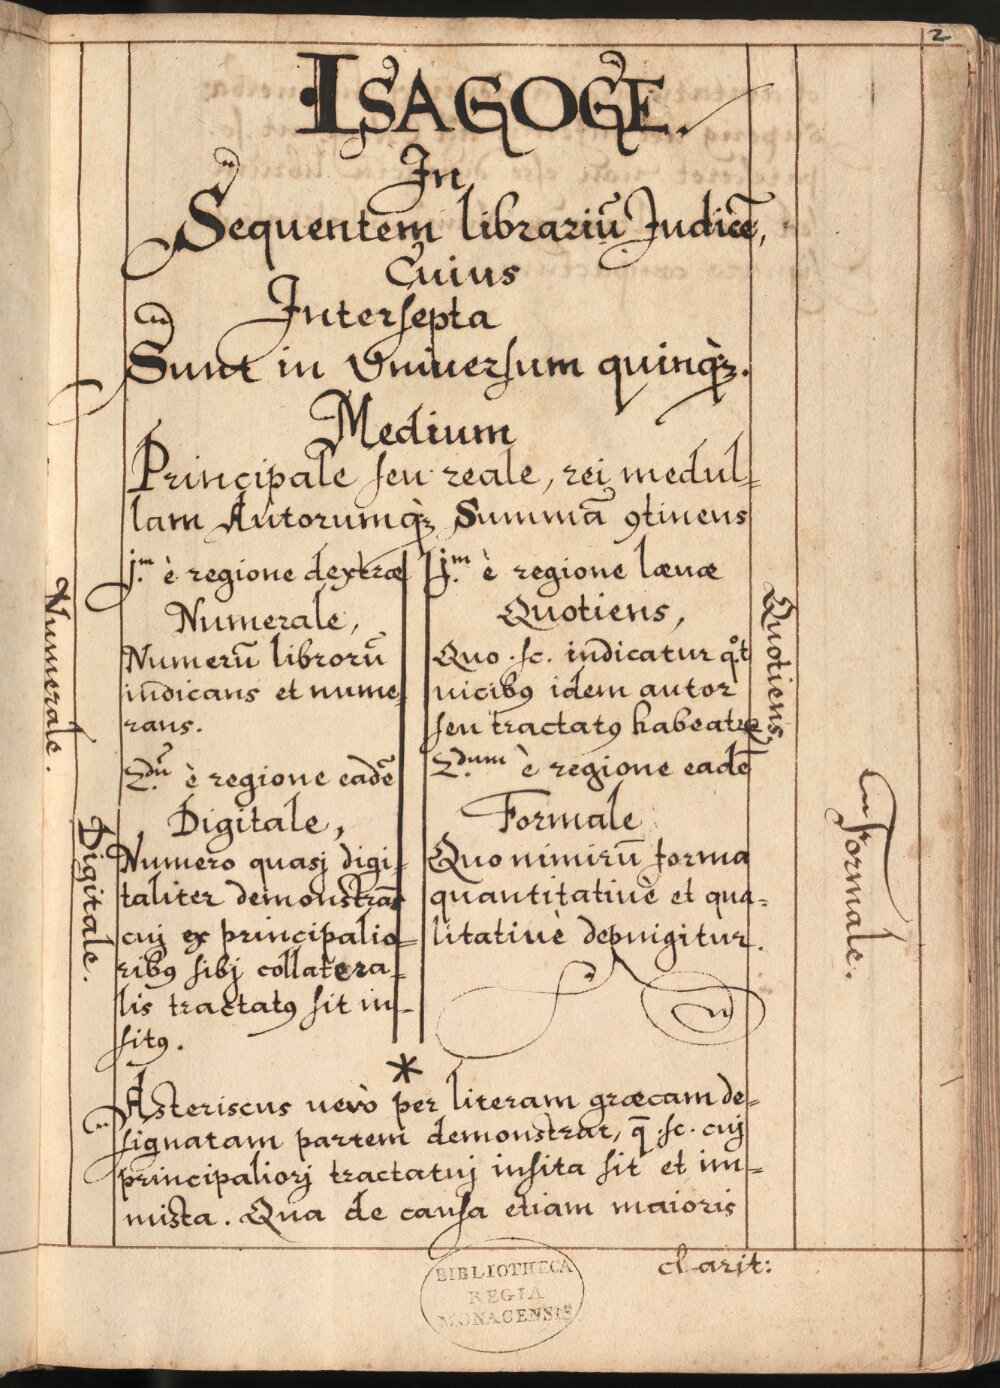 2
ISAGOGE.
In
Sequentem librariū Indicē,
Cuius
Intersepta
Sunt in Vniuersum quinq̀ꝫ.
Medium
Principale seu reale, rei medul-
lam Autorumq̀ꝫ Summā ꝯtinens
j.ᵐ è regione dextræ
Numerale,
Numerū librorū
indicans et nume
rans.
2.dū è regione eadē
Digitale,
Numero quasj digi-
taliter demonstrās
cuj ex principalio-
ribꝰ sibj collatera-
lis tractatꝰ sit in-
sitꝰ.
j.ᵐ è regione læuæ
Quotiens,
Quo .sc. indicatur qͦt
uicibꝰ idem autor
seu tractatꝰ habeatur
2.dum è regione eadē
Formale
Quo nimirū forma
quantitatiuè et qua-
litatiuè depingitur.
Numerale.
Digitale.
Quotiens,
formale.
*
Asteriscus uerò per literam græcam de-
signatam partem demonstrat, q̄ .sc. cuj
principaliorj tractatuj insita sit et im-
mista. Qua de causa etiam maioris
clarit:
BIBLIOTHECA
REGIA
MONACENSIS